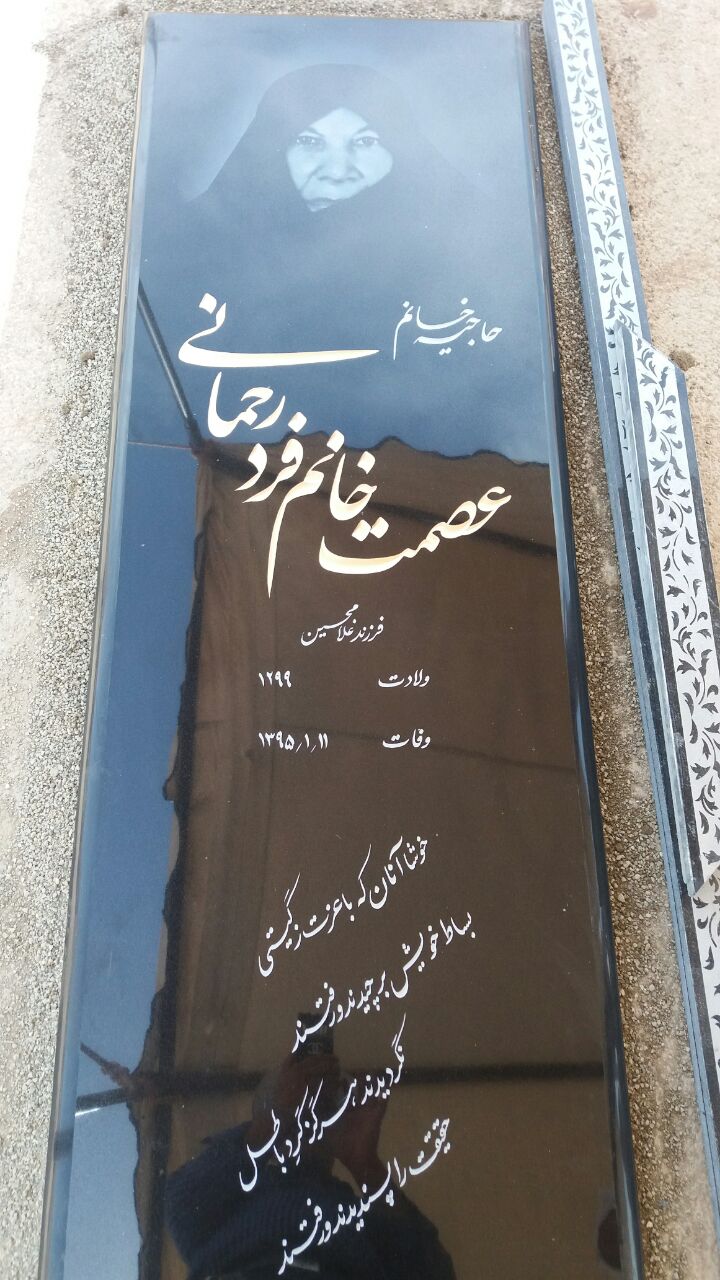 حاجیه خانم
عصمت خانم فرد رحمانی
فرزند غلامحسین
ولادت ۱۲۹۹
وفات ۱۳۹۵٫۱٫۱۱
خوشا آنان که با عزت ز گیتی
بساط خویش برچیدند و رفتند
نگردیدند هرگز گرد باطل
حقیقت را پسندیدند و رفتند